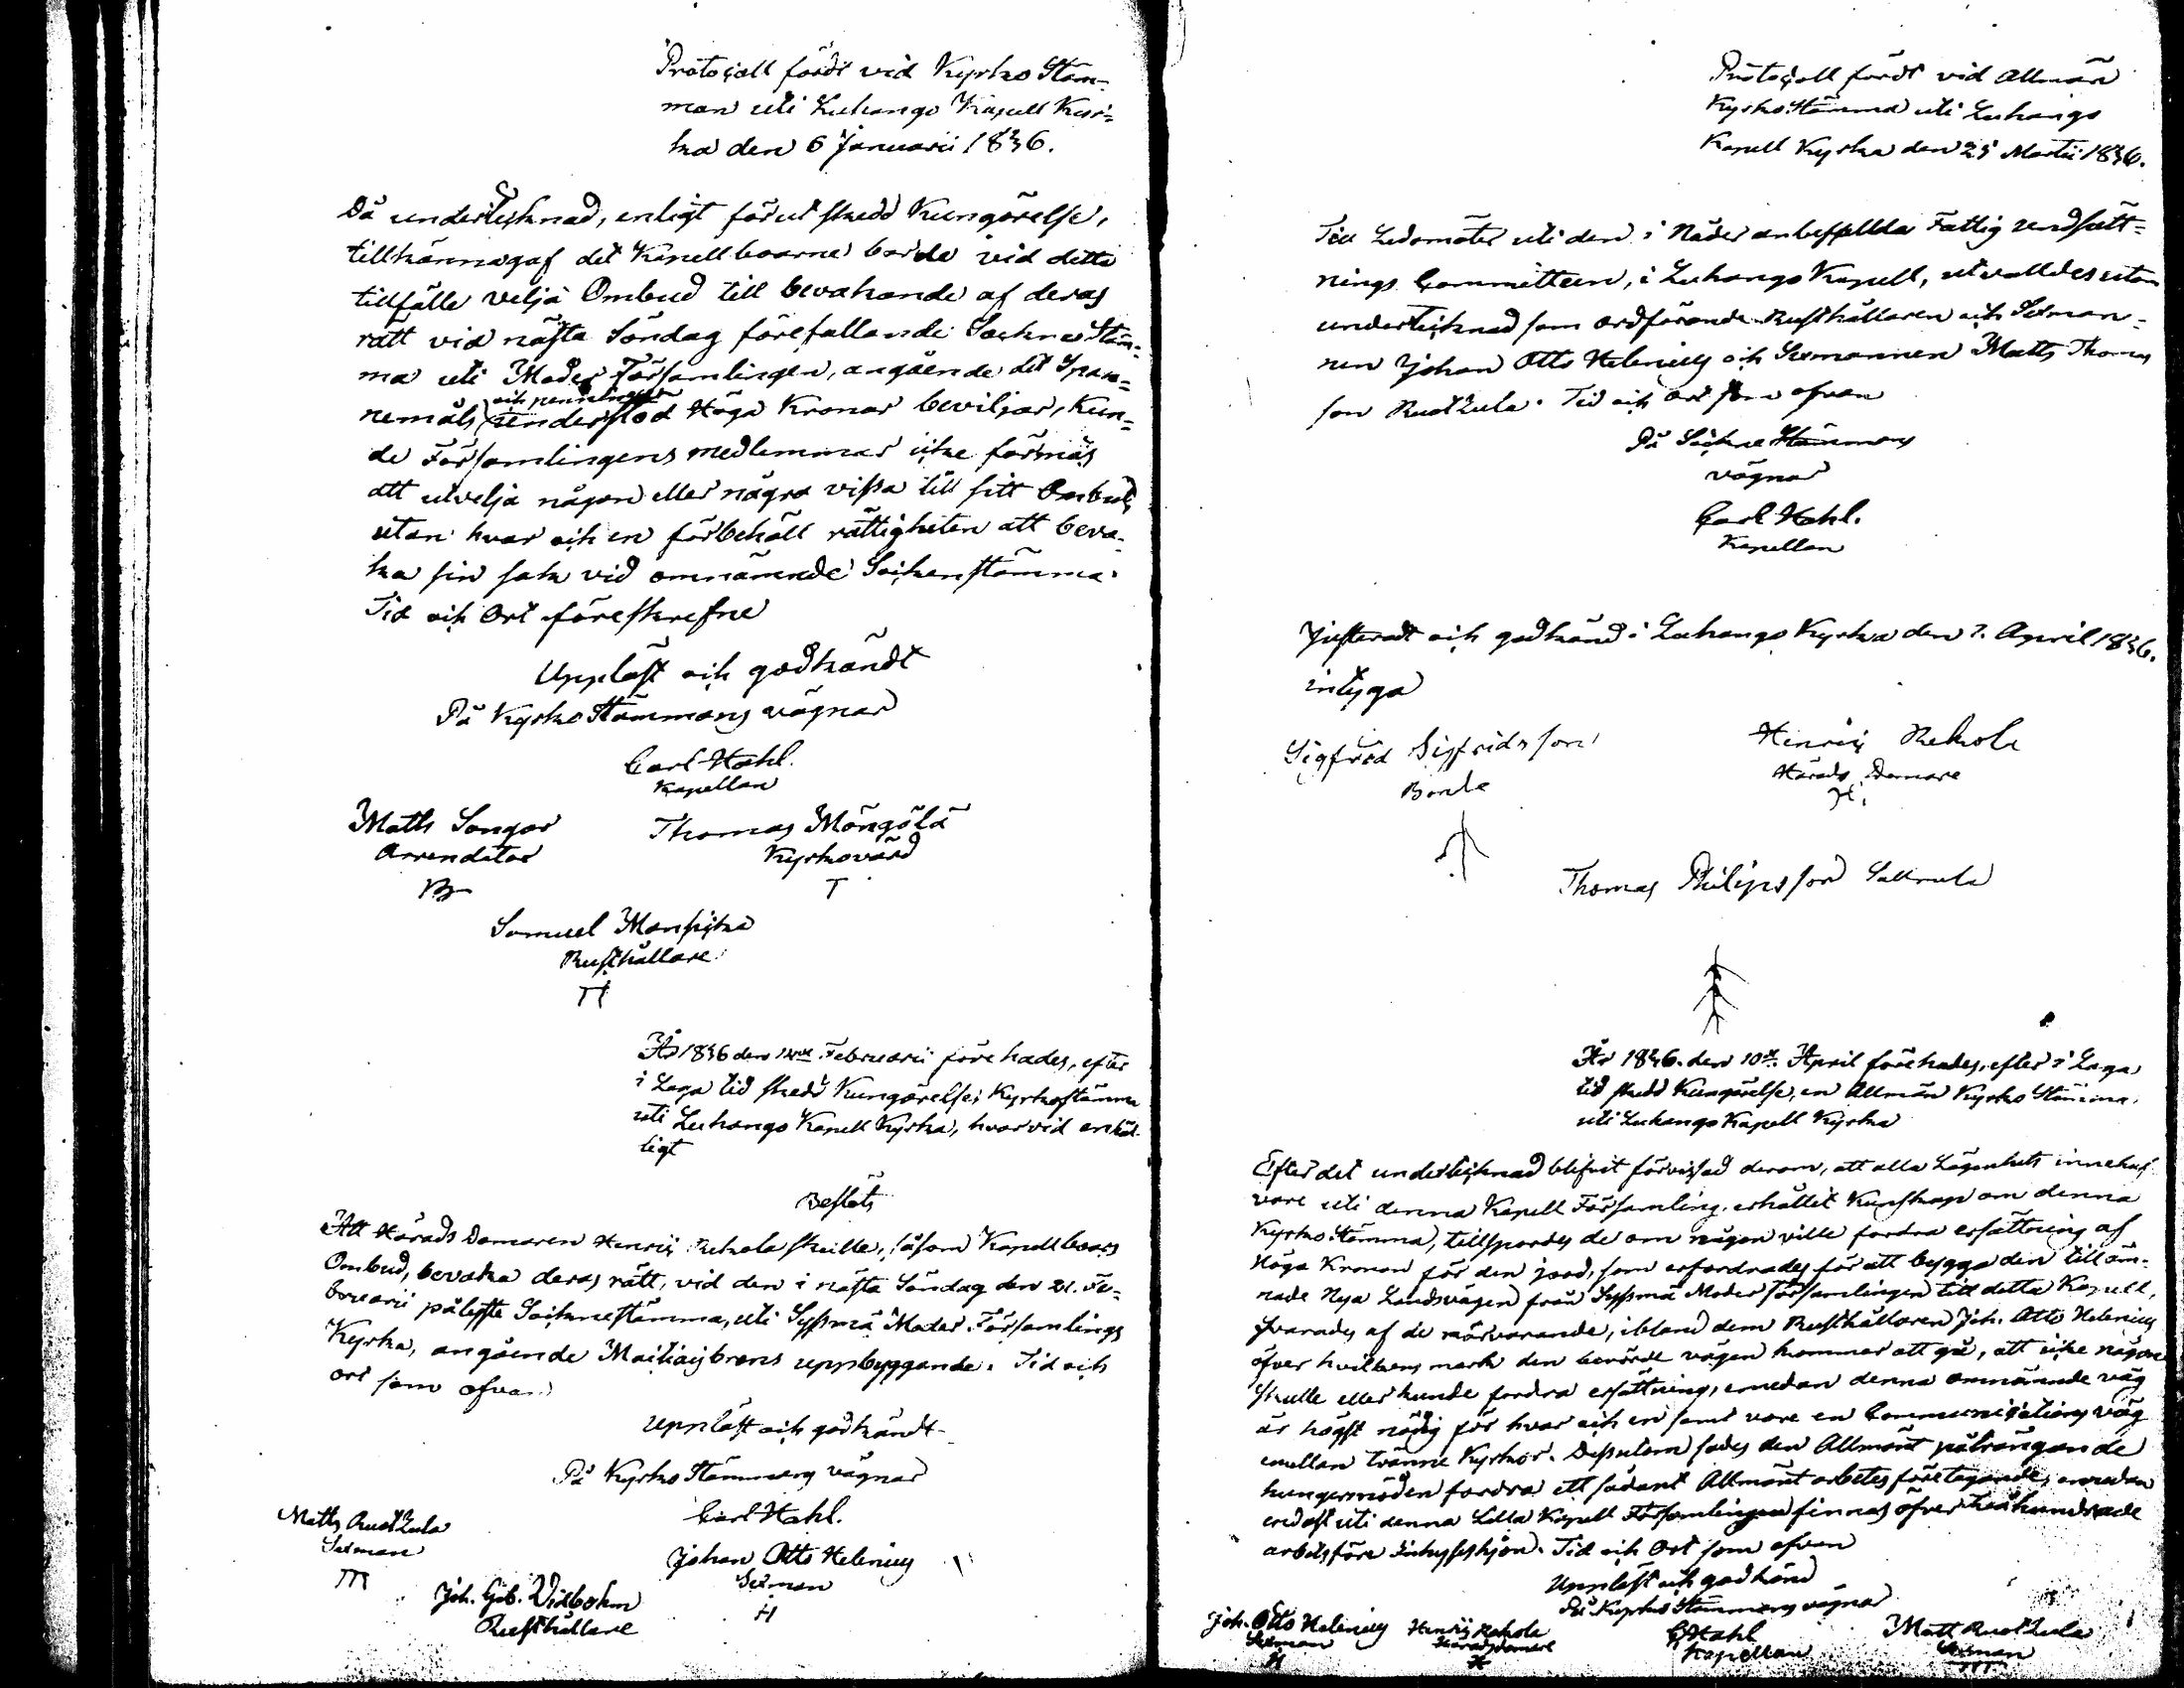 Protocoll fördt vid Kyrko Stäm-
man uti Luhango Kapell Kyr-
ka den 6 Januarii 1836.
Då undertecknad, enligt förut skedd Kungörelse,
tillkännagaf det Kapellboarne borde vid detta
tillfälle velja Ombud till bevakande af deras
rätt vid nästa Söndag förefallande Sockne Stäm-
ma uti Moder Församlingen, angående det Span-
nemåls och penninge
understöd Höga Kronar beviljar, kun-
de Församlingens medlemmar icke förmås
att utvelja någon eller några vissa till sitt Ombud,
utan hvar och en förbehöll rättigheten att beva-
ka sin sak vid omnämnde Sockenstämma.
Tid och Ort föreskrefne
Uppläst och godkändt
På Kyrko Stämmans vägnar
Carl Hahl.
Kapellan
Matts Sangar Thomas Möngölä
Arrendator Kyrkovärd
T
Samuel Mansicka
Rusthållare
År 1836 den Februarii förehades, efter
i Laga tid skedd Kungörelse, Kyrkostämma
uti Luhango Kapell Kyrka, hvarvid enhäl-
ligt
Beslöts
Att Härads Domaren Henric Rekola skulle, såsom Kapellboars
Ombud, bevaka deras rätt, vid den i nästa Söndag den 21. Fe-
bruarii pålyste Socknestämma, uti Sysmä Moder Församlings
Kyrka, angående brons uppbyggande. Tid och
ort som ofvan
Uppläst och godkändt
På Kyrko Stämmans vägnar
Carl Hahl.
Matts Ruolzula
Sexman
Johan Otto Helenius
Sexman
H
Joh. Gab. Vidbohm
Rusthållare
Protocoll fördt vid Allmän
Kyrko Stämma uti Luhango
Kapell Kyrka den 25 Martii 1836.
Till Ledamöter uti den i Nåder anbefallda Fattig
nings Committeen, i Luhango Kapell, utvaldes utom
undertecknad som ordförande Rusthållaren och Sexman-
nen Johan Otto Helenius och Sexmannen Matts Thomas
son Ruolzula. Tid och ort som ofvan
På Sockne Stämmans
vägnar
Carl Hahl.
Kapellan
Justeradt och godkänd i Luhango Kyrka den April 1836.
intyga
Sigfrid Sigfridsson Henric Rekola
Bonde Härads Domare
H.
Thomas Philipsson
År 1836. den 10de April förehades, efter i Laga
tid skedd Kungörelse, en Allmän Kyrko Stämma
uti Luhango Kapell Kyrka
Efter det undertecknad blifvit förvissad derom, att alla Lägenhets innehaf-
vare uti denna Kapell Församling erhållit Kunskap om denna
Kyrko Stämma, tillspordes de om någon ville fordra ersättning af
Höga Kronan för den jord, som erfordrades för att bygga den tilläm-
nade Nya Landsvägen från Sysmä Moder församlingen till detta Kapell,
svarades af de närvarande, ibland dem Rusthållaren Joh. Otto Helenius
öfver hvilkens mark den berörde vägen kommer att gå, att icke någon
skulle eller kunde fordra ersättning, emedan denna omnämnde väg
är högst nödig för hvar och en samt vore en Communications väg
emellan tvänne Kyrkor. Dessutom sades den Allmänt påträngande
hungersnöden fordra ett sådant Allmänt arbetes företagande, emedan
endast uti denna Lilla Kapell Församlingen finnas öfver hundrade
arbetsföre Inhysehjon. Tid och Ort som ofvan
Uppläst och godkänd
På Kyrko Stämmans vägnar
Joh. Otto Helenius Henric Rekola C Hahl Matt Ruolzula
Sexman Häradsdomare Kapellan Sexman
H H